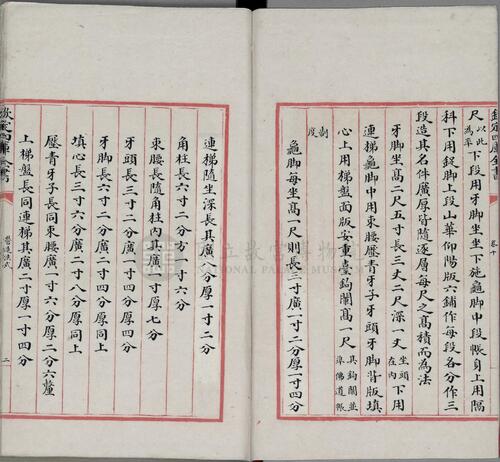 欽定四庫全書
卷十
尺以此為率下段用牙脚坐坐下施龜脚中段帳身上用隔
科下用鋜脚上段山華仰陽版六鋪作每段各分作三
段造其名件廣厚皆隨逐層每尺之高積而為法
牙脚坐高二尺五寸長三丈二尺深一丈坐頭在内下用
連梯龜脚中用束腰壓青牙子牙頭牙脚背版填
心上用梯盤面版安重臺鈎闌高一尺其鈎闌並準佛道帳
制度
龜脚每坐高一尺則長三寸廣一寸二分厚一寸四分
連梯隨坐深長其廣八分厚一寸二分
角柱長六寸二分方一寸六分
束腰長隨角柱内其廣一寸厚七分
牙頭長三寸二分廣一寸四分厚四分
牙脚長六寸二分廣二寸四分厚同上
填心長三寸六分廣二寸八分厚同上
壓青牙子長同束腰廣一寸六分厚二分六釐
上梯盤長同連梯其廣二寸厚一寸四分
欽定四庫全書
營造法式
二
國立故宮博物院
NATIONAL PALACE MUSEUM